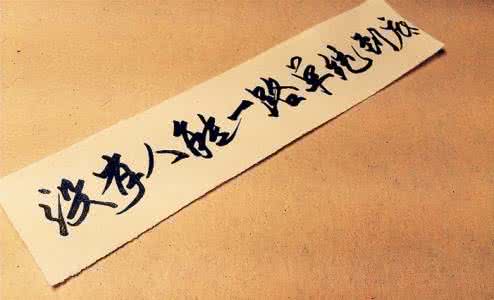 没有人能一路单纯到底